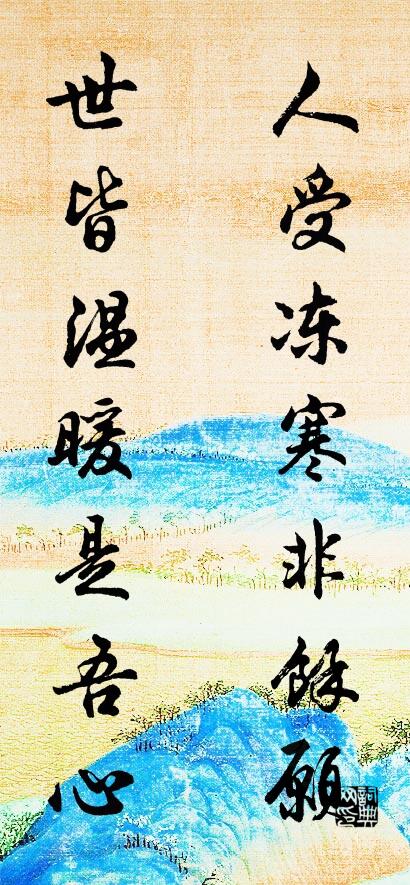 人受冻寒非餘願
世皆温暖是吾心